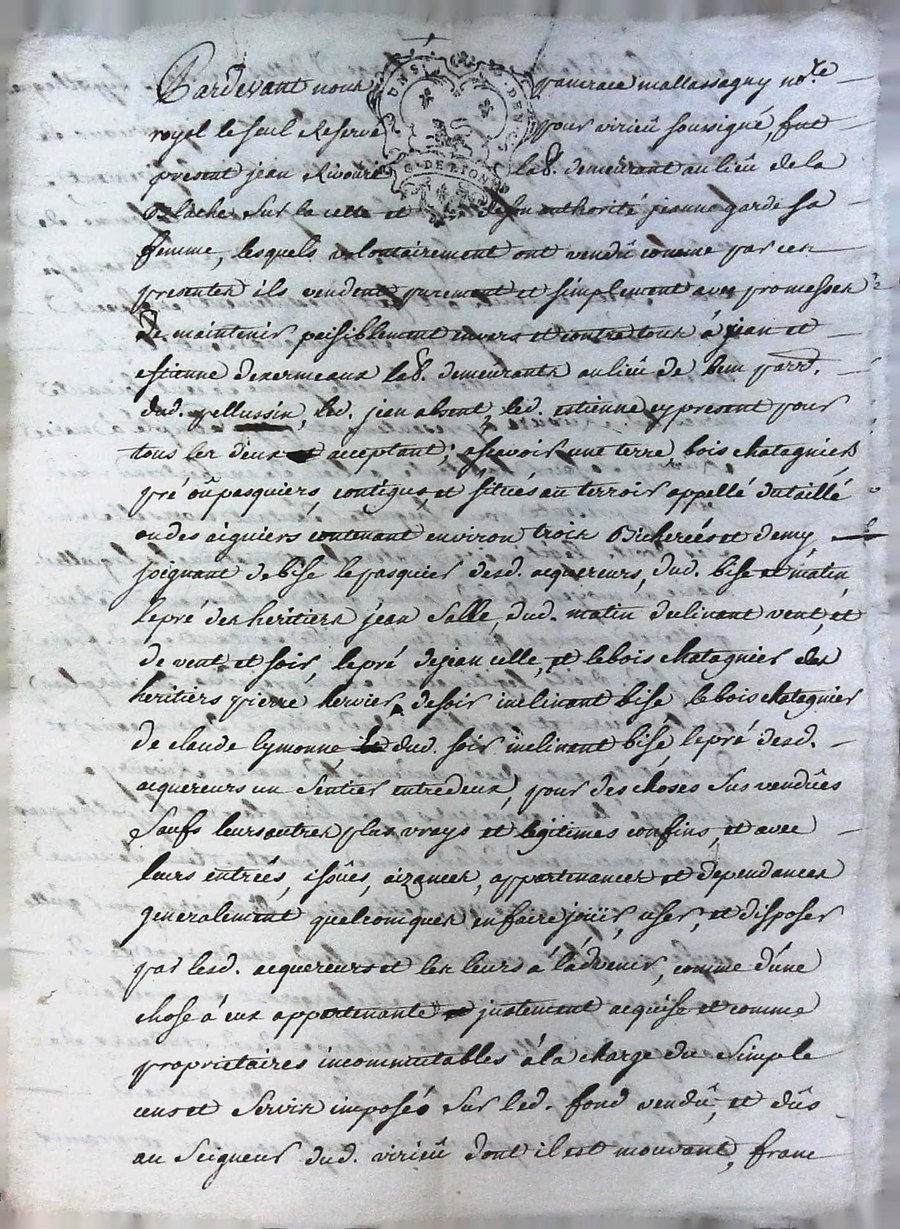 Pardevant nous pancrace mallassagny no.re
royal le seul Reservé pour virieû soussigné, fut
present jean Rivoiri lab.r demeurant au lieû de la
Blache Sur la cette et de son authorité jeanne garde sa
femme, lesquels volontairement ont vendû comme par ces
presentes ils vendent purement et simplement avec promesses
de maintenir paisiblement envers et contre tous à jean et
estienne desermeaux lab.r demeurants au lieû de bem parr.
dud. pellussin, led. jean absent, led. estienne cy present pour
tous les deux acceptant; asçavoir une terre, bois chatagnier
pré oû pasquiers, contigus et situés au terroir appellé dutaillé
ou des aiguiers contenant environ trois Bicherées et demy
joignant de bise le pasquier desd. acquereurs, dud. bise et matin
le pré des heritiers jean Salle, dud. matin declinant vent, et
de vent et soir, le pré de jean celle, et le bois chatagnier des
heritiers pierre hervier, de soir inclinant bise le bois chatagnier
de claude lymonne dud. soir inclinant bise, le pré desd.
acquereurs un sentier entredeux, pour des choses sus vendûes
Saufs leurs autres plus vrays et legitimes confins, et avec
leurs entrées, issûes, aizances, appartenances et dependances
generalement quelconques en faire joüir, user, et disposer
par lesd. acquereurs et les leurs à l'advenir, comme d'une
chose à eux appartenante justement acquise et comme
proprietaires incommutables à la charge du Simple
cens et servis imposés sur led. fond vendû, et dûs
au Seigneur dud. virieû dont il est mouvant, franc
G. DE LYON